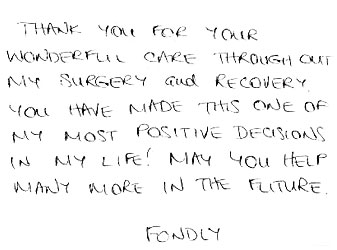 THANK YOU FOR YOUR
WONDERFUL CARE THROUGH OUT
MY SURGERY and RECOVERY.
YOU HAVE MADE THIS ONE OF
MY MOST POSITIVE DECISIONS
IN MY LIFE! MAY YOU HELP
MANY MORE IN THE FUTURE.
FONDLY